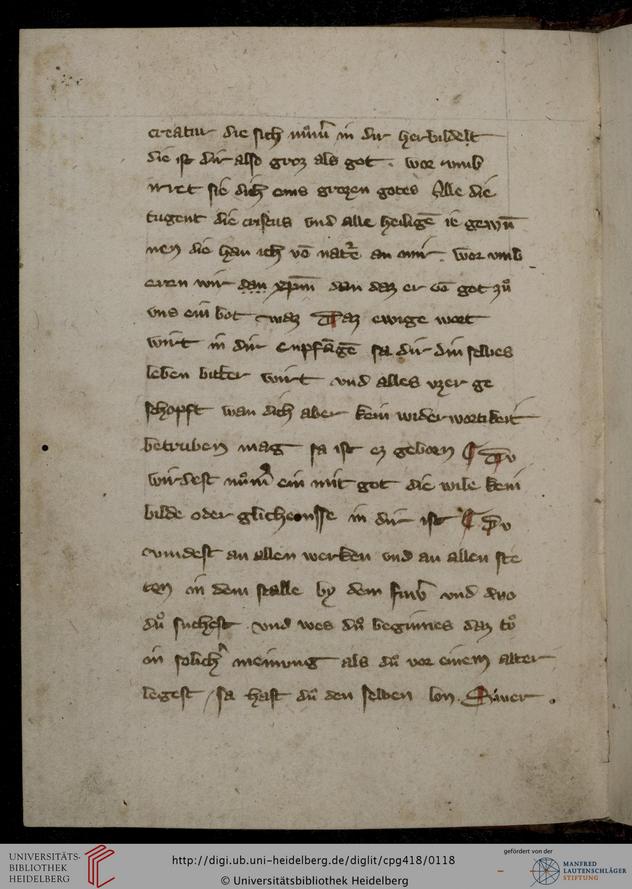 creatur die sich nūm̄ in dir herbildelt
die ist dir also groz als got . wor vmb
irret sie dich eins grozen gotes Alle die
tugent die cristus vnd alle heiligē ie gewū
nen die han ich vō natᷣe an mir . wor vmb
eren wir dan xpm̄ dan daz er vō got zuͦ
vns ein bot waz Daz ewige wort
wirt in dir enpfāgē sa dir din selbes
leben bitter wirt vnd alles vzer ge
schopft wan dich aber kein widerwortikeit
betruben mag sa ist ez geborn ¶ Du
wirdest nūm̄ᷣ ein mit got die wile kein
bilde oder glichenisse in dir ist ¶ Du
vindest an allen werken vnd an allen ste
ten in dem stalle by dem fuwᷣ vnd wo
duͦ suchest vnd wes duͦ beginnes daz tuͦ
in solichᷣ meinung als duͦ vor einem alter
legest / sa hast duͦ den selben lon .
UNIVERSITÄTS-
BIBLIOTHEK
HEIDELBERG
http://digi.ub.uni-heidelberg.de/diglit/cpg418/0118
© Universitätsbibliothek Heidelberg
gefördert von der
MANFRED
LAUTENSCHLÄGER
STIFTUNG